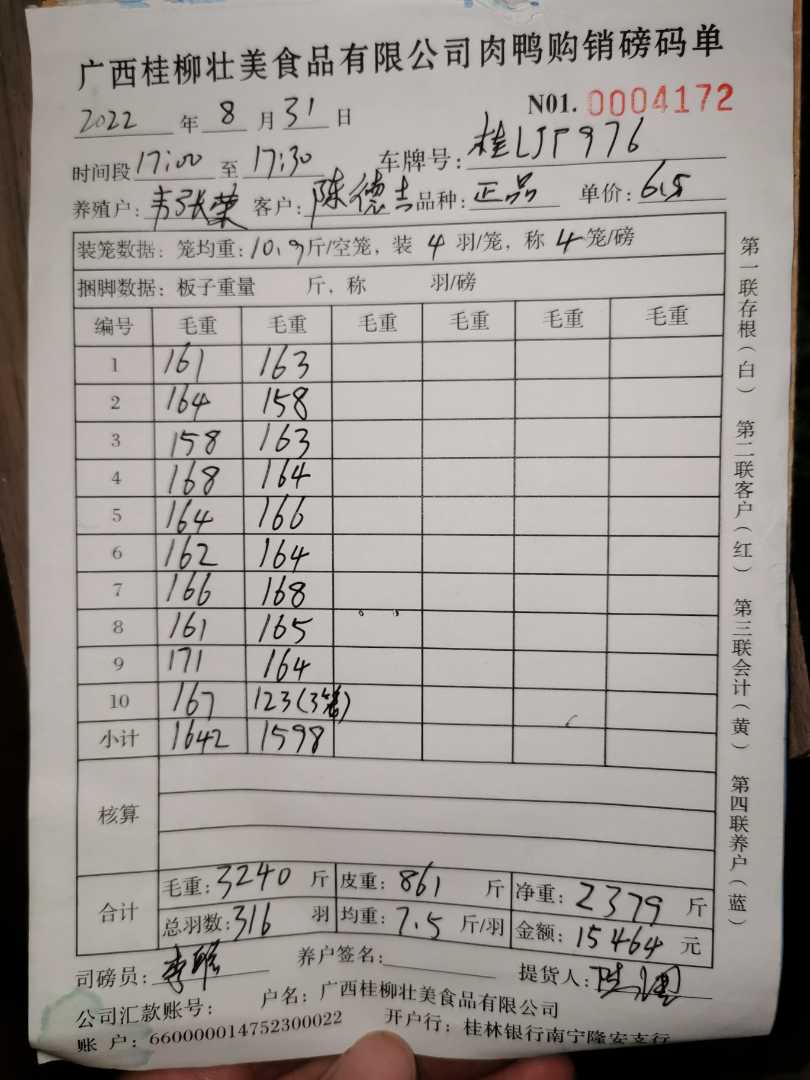 广西桂柳壮美食品有限公司肉鸭购销磅码单
2022 年 8 月 31 日 N01. 0004172
时间段 17:00 至 17:30 车牌号: 桂LJP976
养殖户: 韦张荣 客户: 陈德吉 品种: 正品 单价: 6.5
装笼数据: 笼均重: 10.9 斤/空笼, 装 4 羽/笼, 称 4 笼/磅
捆脚数据: 板子重量 斤, 称 羽/磅
编号 毛重 毛重 毛重 毛重 毛重 毛重
1 161 163
2 164 158
3 158 163
4 168 164
5 164 166
6 162 164
7 166 168
8 161 165
9 171 164
10 167 123(3笼)
小计 1642 1598
核算
合计 毛重: 3240 斤 皮重: 861 斤 净重: 2379 斤
总羽数: 316 羽 均重: 7.5 斤/羽 金额: 15464 元
司磅员: 养户签名: 提货人:
公司汇款账号: 户名: 广西桂柳壮美食品有限公司
账 户: 660000014752300022 开户行: 桂林银行南宁隆安支行
第一联存根(白) 第二联客户(红) 第三联会计(黄) 第四联养户(蓝)